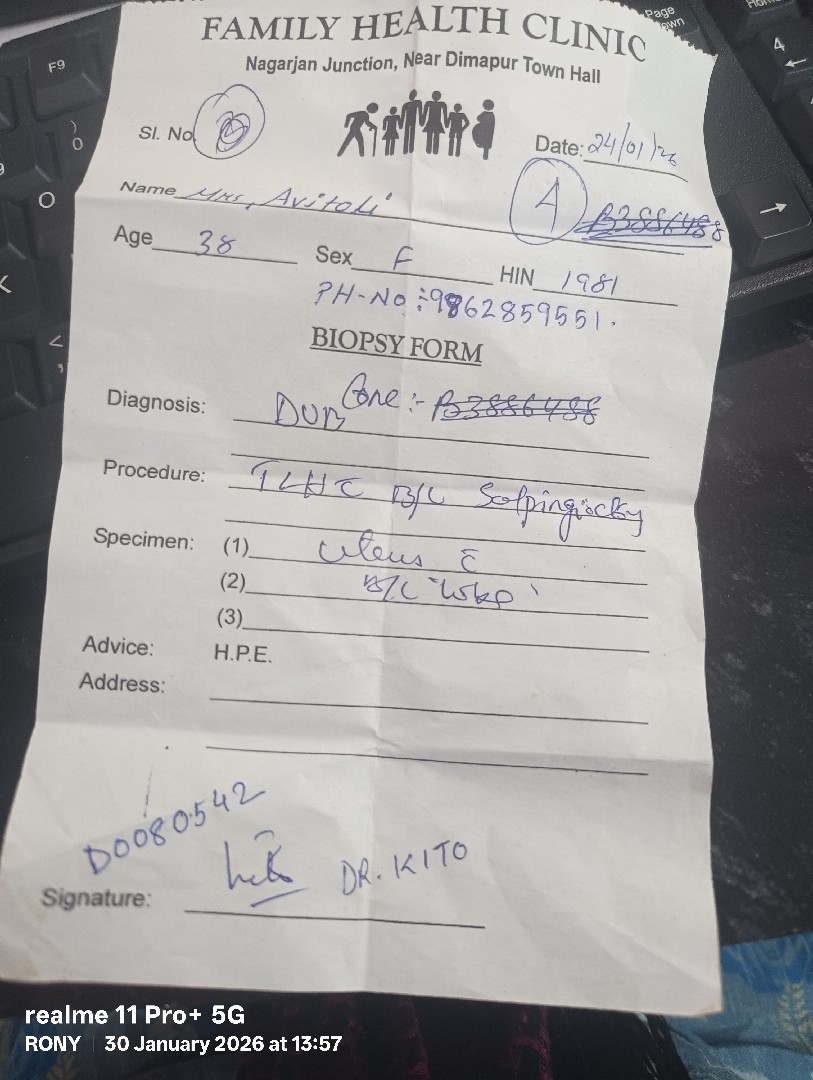 FAMILY HEALTH CLINIC
Nagarjan Junction, Near Dimapur Town Hall
Sl. No
Date: 24/01/26
Name Mrs, Avitoli
A B3886488
Age 38 Sex F HIN 1981
PH-NO: 9862859551.
BIOPSY FORM
Diagnosis: DUB Core:- B3886488
Procedure: TLH C̄ B/L Salpingectomy
Specimen: (1) Uterus c̄
(2) B/L
(3)
Advice: H.P.E.
Address:
D0080542
DR. KITO
Signature:
realme 11 Pro+ 5G
RONY 30 January 2026 at 13:57
F9
Page
4
)
0
O
<